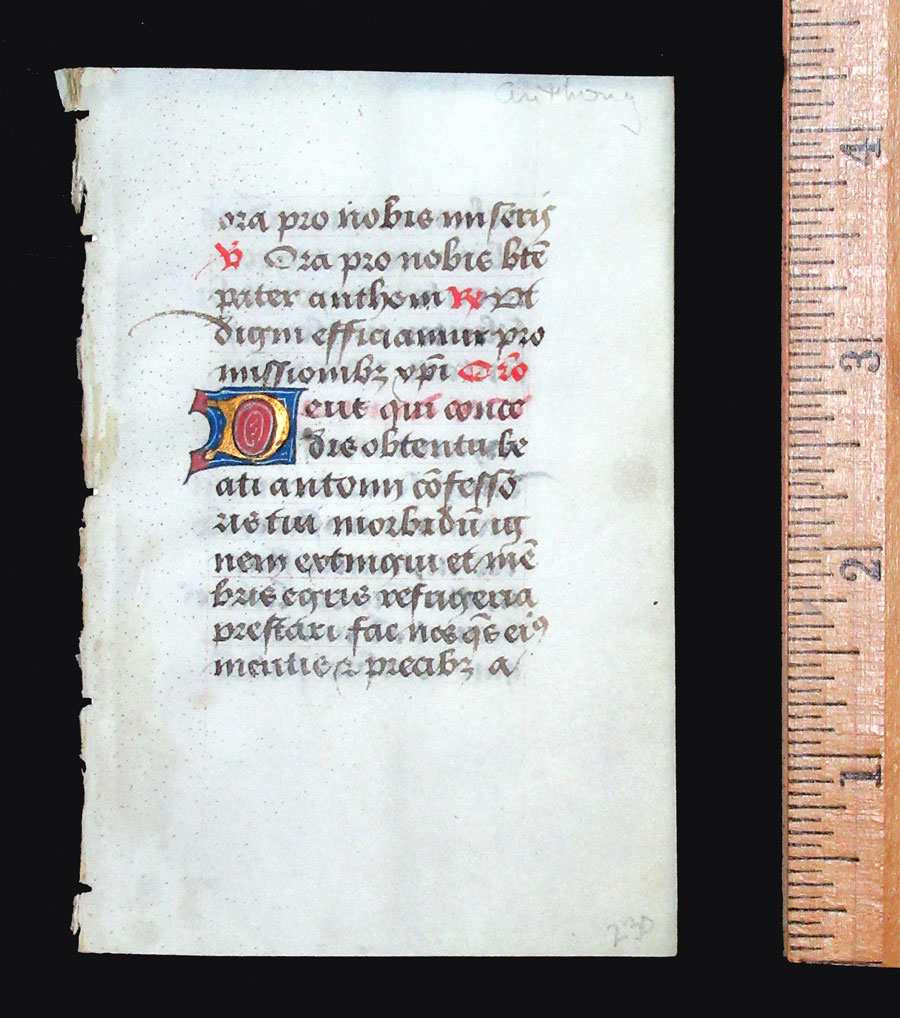 Anthony
ora pro nobis miseris
V Ora pro nobis btē
pater anthoni R Vt
digni efficiamur pro
missionibꝫ xp̄i Orō
Deus qui conce
dis obtentu be
ati antonij cōfesso
ris tui morbidū ig
nem extingui et mē
bris egris refrigeria
prestari fac nos q̄s eiꝰ
meritis ⁊ precibꝫ a
230
4
3
2
1